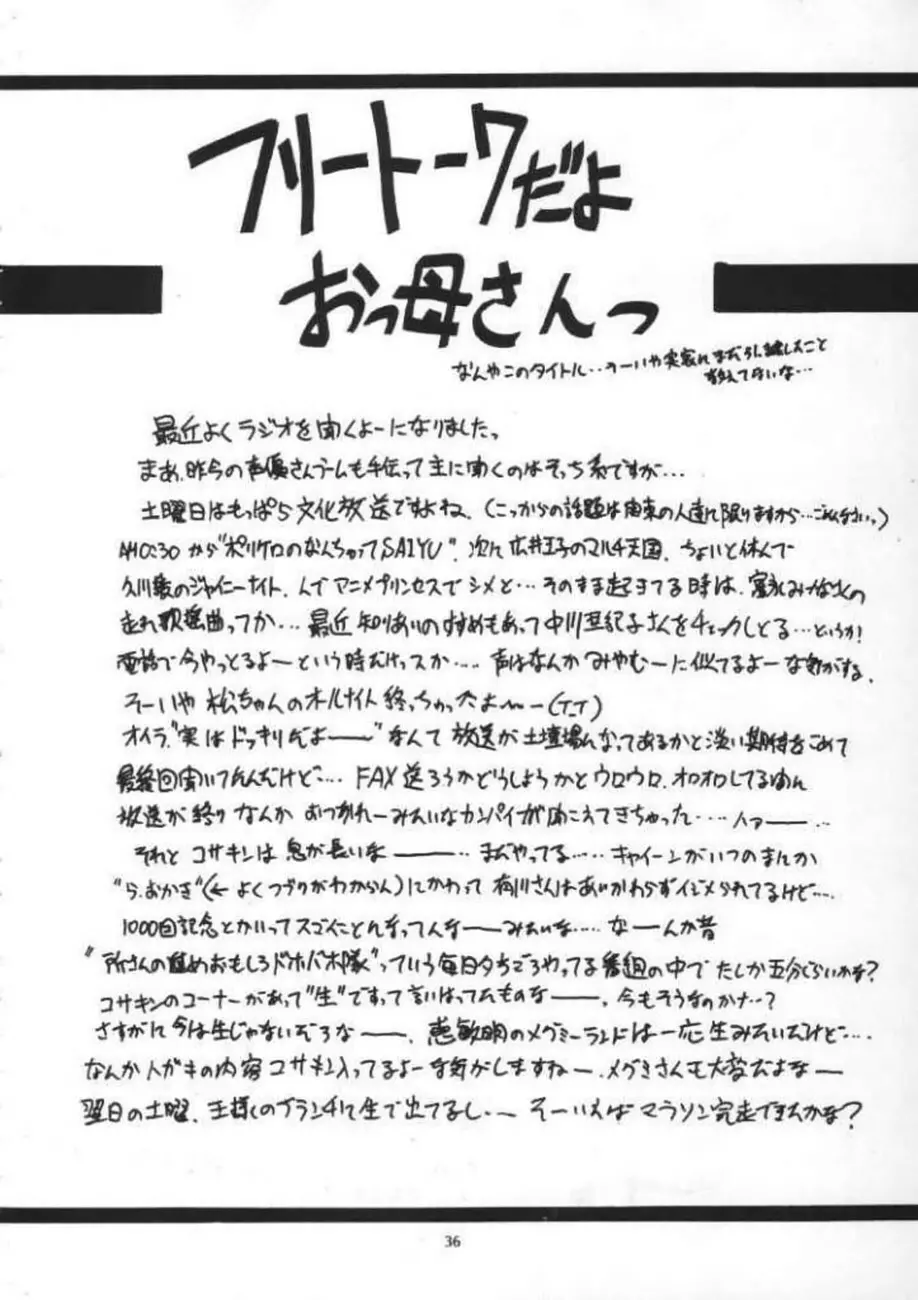 フリートークだよ
おっ母さんっ
なんやこのタイトル‥そーいや実家にまだ引っ越したこと
教えてないな…
最近よくラジオを聞くよーになりました。
まあ、昨今の声優さんブームも手伝って主に聞くのはそっち系ですが…
土曜日はもっぱら文化放送ですよね、(こっからの話題は関東の人達に限りますから…ごめんなさいっ)
AM0:30から"ポリケロのなんちゃってSAIYU"、次に広井王子のマルチ天国、ちょいと休んで
久川綾のシャイニーナイト、んでアニメプリンセスでシメと…そのまま起きてる時は、富永みーなさんの
走れ歌謡曲ってか…最近知りあいのすすめもあって中川亜紀子さんをチェックしとる…というか!
電話で今やっとるよーという時だけっスか‥‥声はなんかみやむーに似てるよーな気がする、
そーいや松ちゃんのオールナイト終っちゃったよ〜ー(T_T)
オイラ、"実はドッキリだよ――"なんて放送が土壇場になってあるかと淡い期待をこめて
最終回聞いてたんだけど…FAX送ろうかどうしようかとウロウロ、オロオロしてるめん
放送が終りなんかおつかれーみたいなカンパイが聞こえてきちゃった‥‥ハァ――‥
それとコサキンは息が長いな――‥まだやってる‥‥キャイーンがいつのまんか
"ら・おかき"(←よくつづりがわからん)にかわって有川さんはあいかわらずイジメられてるけど‥‥
1000回記念とかいってスゴイことんなってんな――みたいな‥‥な――んか昔
"所さんの進めおもしろドホバホ隊"っていう毎日夕ちごろやってる番組の中でたしか五分ぐらいかな?
コサキンのコーナーがあって"生"ですって言いはってたものな――、今もそうなのかナ‥?
さすがに今は生じゃないだろな――、恵敏明のメグミーランドは一応生みたいだけど‥‥
なんかハガキの内容コサキン入ってるよーな気がしますねー、メグミさんも大変だよなー
翌日の土曜、王様のブランチに生で出てるし‥〜そーいえばマラソン完走できたかな?
36